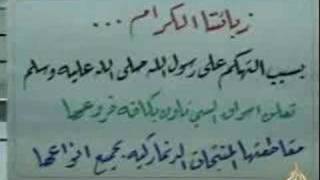 زبائننا الكرام ...
بسبب التهكم على رسول الله صلى الله عليه وسلم
تعلن اسواق السي تاون بكافة فروعها
مقاطعتها للمنتجات الدنماركيه بجميع انواعها